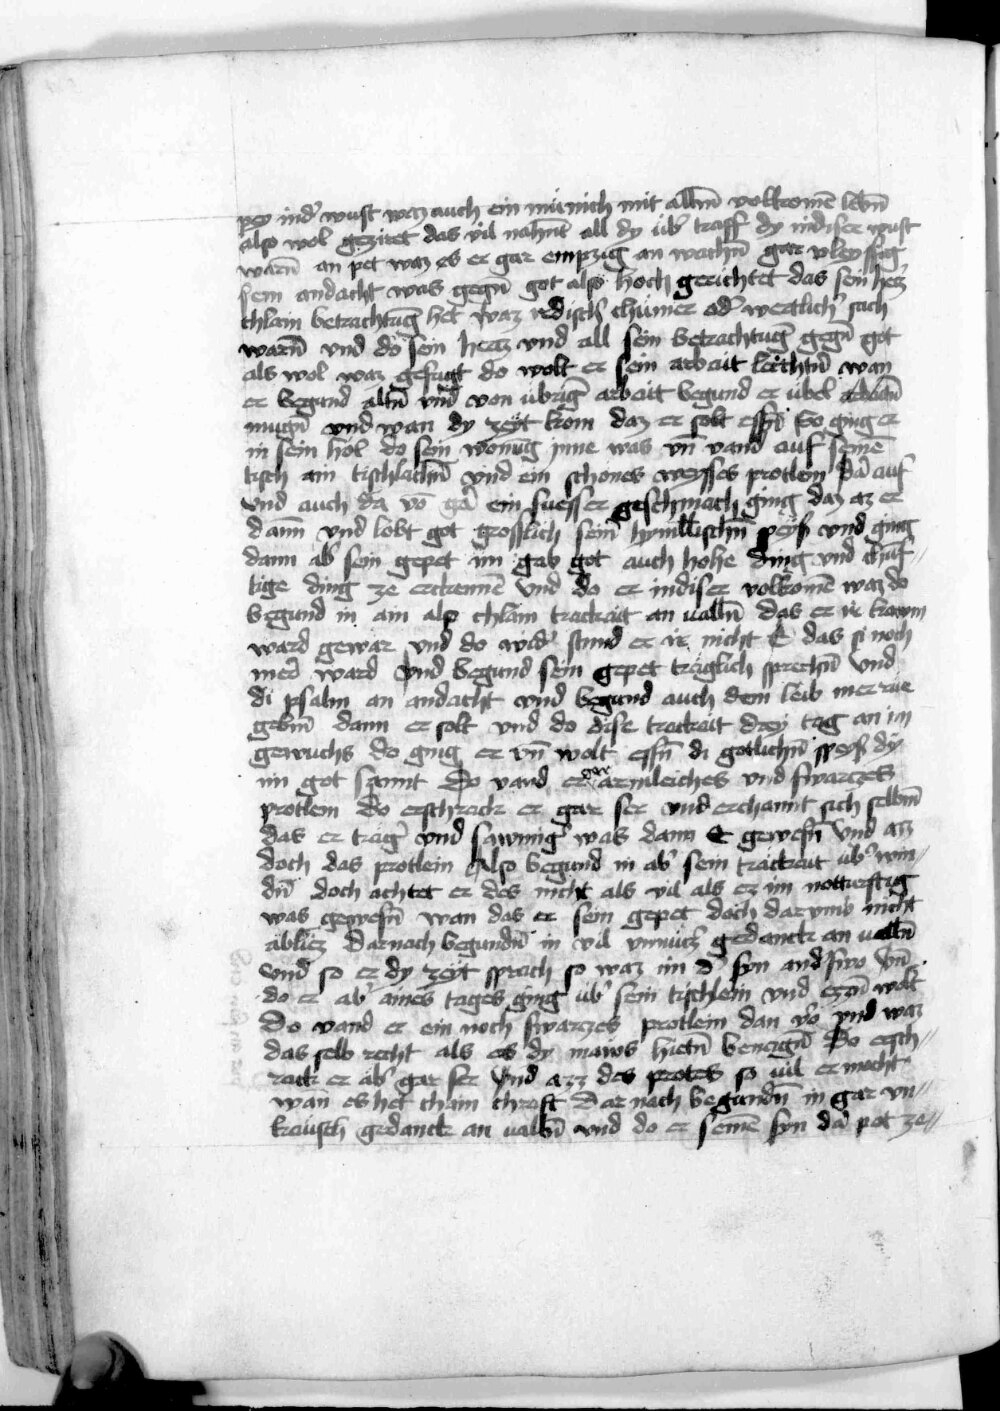 pey ind' wust waz auch ein münich mit alln̄ volkomē lebn̄
also wol gezieret das vil nahn̄t all dy üb' traff dy in diser wust
warn̄ an pet waz es er gar empzig an wachn̄ gar vleyssig
Sein andacht was gegn̄ got also hoch gerichtet das sein hercz
chlain betrachtūg het waz irdisch' chümer od' wertlich' sach
warn̄ vnd do sein hercz vnd all sein betrachtūg gegn̄ got
als wol waz gefügt do wolt er sein arbait leichtn̄ wan
er begund altn̄ vnd von übrig' arbait begund er übel arbaitn̄
mugn̄ vnd wan dy zeyt kom daz er solt essn̄ So ging er
in sein hol do sein wonūg jnne was vn̄ vand auf seinē
tisch ain tischlachn̄ vnd ein schones weysses protlein dar auf
vnd auch da vō gar ein suesser geschmach ging daz az er
dann vnd lobt got grosslich seinr̄ hymllischn̄ speyß vnd ging
dann ab' sein gepet im gab got auch hohe ding vnd chūf-
tige ding ze erkennē vnd do er in diser volkomē waz do
begund in ain also chlain trackait an valln̄ das er ir kawm
ward gewar vnd do wid' stund er ir nicht E das si noch
mer ward vnd begund sein gepet träglich sprechn̄ vnd
di psalm an andacht vnd begund auch dem leib mer rue
gebn̄ dann er solt vnd do dise trackait drey tag an im
gewuchs do ging er vn̄ wolt essn̄ di gotlichn̄ speyß dy
im got sannt Do vand er gar ärmleiches vnd swarczes
protlein do erschrack er gar ser vnd erchannt sich selbn̄
das er träg' vnd sawmig' was dann E gewesn̄ vnd azz
doch das protlein Also begund in ab' sein trackait üb' win-
dn̄ doch achtet er des nicht als vil als ez im notturftig
was gewesn̄ wan das er sein gepet doch dar vmb nicht
abliez Dar nach begundn̄ in vil vnnücz' gedanck an valln̄
vnd so er dy zeyt sprach so waz im d' syn and'swo vn̄
do er ab' aines tages ging üb' sein tischlein vnd ezzn̄ wolt
Do vand er ein noch swarczes protlein dan vor vnd waz
das selb recht als es dy maws hietn̄ benagn̄ Do ersch-
rack er ab' gar ser vnd azz des protes so vil er mocht
wan es het chain chraft Dar nach begundn̄ in gar vn-
kewsch gedanck an valln̄ vnd do er seinē syn dar pot ze-